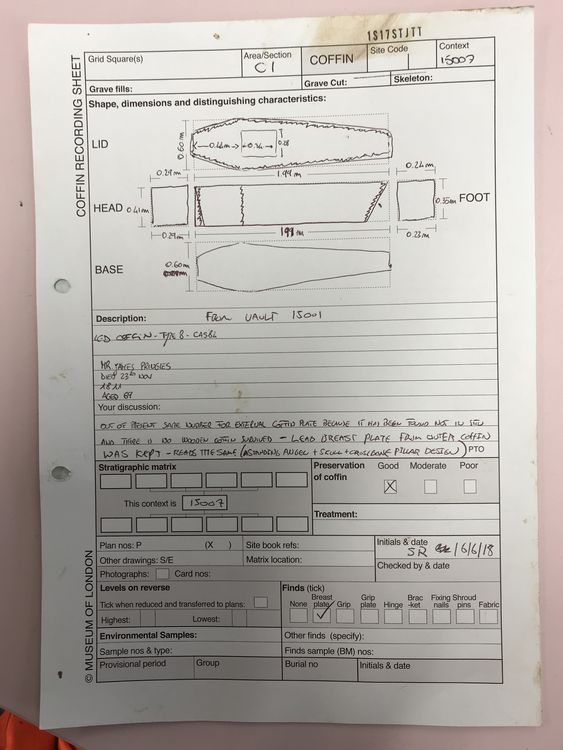 1S17STJTT
COFFIN RECORDING SHEET
Grid Square(s)
Area/Section
C1
COFFIN
Site Code
Context
15007
Grave fills:
Grave Cut:
Skeleton:
Shape, dimensions and distinguishing characteristics:
LID
0.60 m
1.99 m
0.29 m
0.24 m
HEAD
0.41 m
0.35 m
FOOT
0.29 m
199 m
0.23 m
BASE
0.60 m
Description:
FROM VAULT 15001
LED COFFIN - TYPE 8 -
MR JAMES
DIED 23th NOV
1811
AGED 69
Your discussion:
OUT OF SAME NUMBER FOR EXTERNAL COFFIN PLATE BECAUSE IT HAS BEEN FOUND NOT IN SITU
AND THERE IS NO WOODEN COFFIN SURVIVED - LEAD BREAST PLATE FROM OUTER COFFIN
WAS KEPT - READS THE SAME (ASTANDING ANGEL + SKULL + CROSSBONE PILLAR DESIGN) PTO
Stratigraphic matrix
This context is 15007
Preservation of coffin
Good
Moderate
Poor
Treatment:
Plan nos: P (X )
Site book refs:
Initials & date
SR /6/6/18
Other drawings: S/E
Matrix location:
Checked by & date
Photographs:
Card nos:
Levels on reverse
Tick when reduced and transferred to plans:
Highest:
Lowest:
Finds (tick)
None
Breast plate
Grip
Grip plate
Hinge
Brac -ket
Fixing nails
Shroud pins
Fabric
Environmental Samples:
Sample nos & type:
Other finds (specify):
Finds sample (BM) nos:
Provisional period
Group
Burial no
Initials & date
© MUSEUM OF LONDON